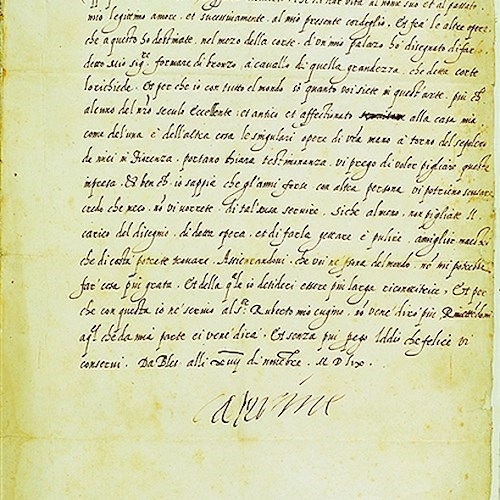 vita al nome suo et al passato
mio legitimo amore, et sucessiuamente al mio presente cordoglio. Et fra le altre opere
che a questo ho destinate, nel mezo della corte d'un mio palazo ho disegnato di far lo
detto mio sig.re formare di bronzo, a cauallo di quella grandezza, che detta corte
lo richiede. Et per che io con tutto el mondo so quanto voi siete in quest'arte, più ch'
alcuno del nro seculo Eccellente, et antico et affectionato alla casa mia
come del'una è dell'altra cosa le singulari opere di vra mano a torno del sepolcro
de miei in Fiorenza, portano chiara testimonianza, vi prego di voler pigliare questa
impresa, Et ben ch' io sappia che gl'anni forse con altra persona vi potrieno scusare
credo che meco, nō vi vorrete di tal scusa seruire. Siche al meno, non pigliate il
carico del disegnio, di detta opera, et di farla gettare è pulire, a miglior maestri
che di costa potrete trouare. Assicurandoui, che voi ne psona del mondo, nō mi potrebbe
far' cosa piu grata. Et della q.le io desideri essere più larga riconoscitrice, Et per
che con questa io ne scriuo al S.r Ruberto mio cugino, nō vene dirò più Rimettēdomi
a q.l che da mia parte ei vene dirà. Et senza piu pego Iddio che felice vi
conserui. Da Bles. alli xiiij di nouēbre. M D lix.
Caterine